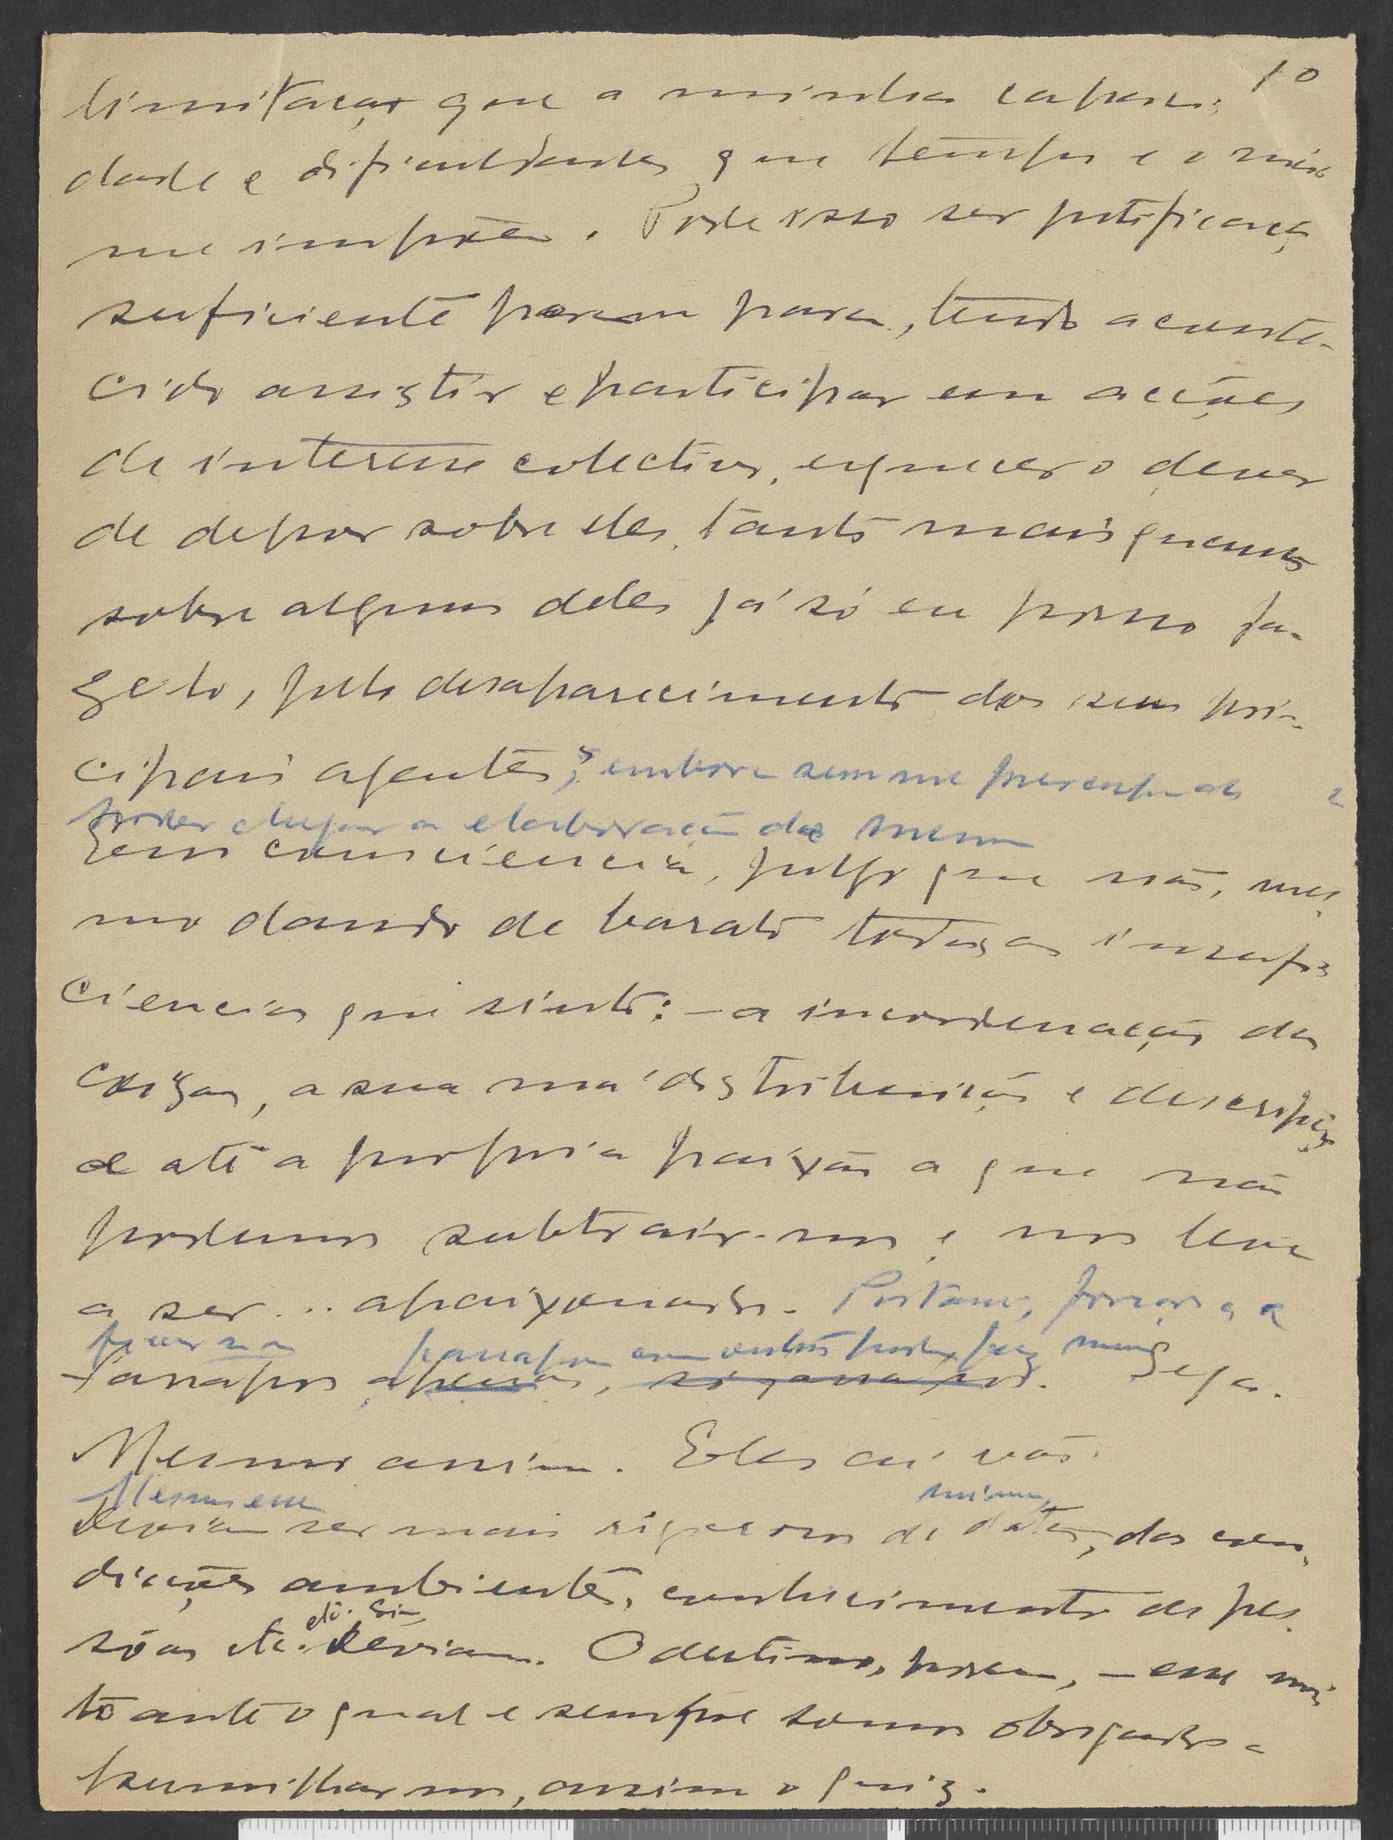 10
limitação que a minha capaci-
dade e dificuldades que tempo e o meio
me impõem. Pode isso ser justificação
suficiente porem para, tendo aconte-
cido assistir e participar em acções
de interesse colectivo, esquecer o dever
de depor sobre eles, tanto mais quanto
sobre alguns deles já só eu posso fa-
ze-lo, pelo desaparecimento dos seus prin-
cipais agentes; embora sem me
poder chegar a elaboração de
Em consciencia, julgo que não, mes-
mo dando de barato todas as insufi-
ciencias que sinto: - a incordenação das
coizas, a sua má distribuição e descripção
e até a propria paixão a que não
podemos subtrair-nos e nos leva
a ser... apaixonados. Portanto,
ficar na
Seja.
Mesmo assim. Eles aí vão.
Mesmo em
Deviam ser mais rigorosos de datas, das con-
dicções ambientes, conhecimento de pes-
sôas etc. etc. Sim, Deviam. O destino, porem, - esse mi-
to ante o qual e sempre somos obrigados a
humilhar-nos, assim o quiz.